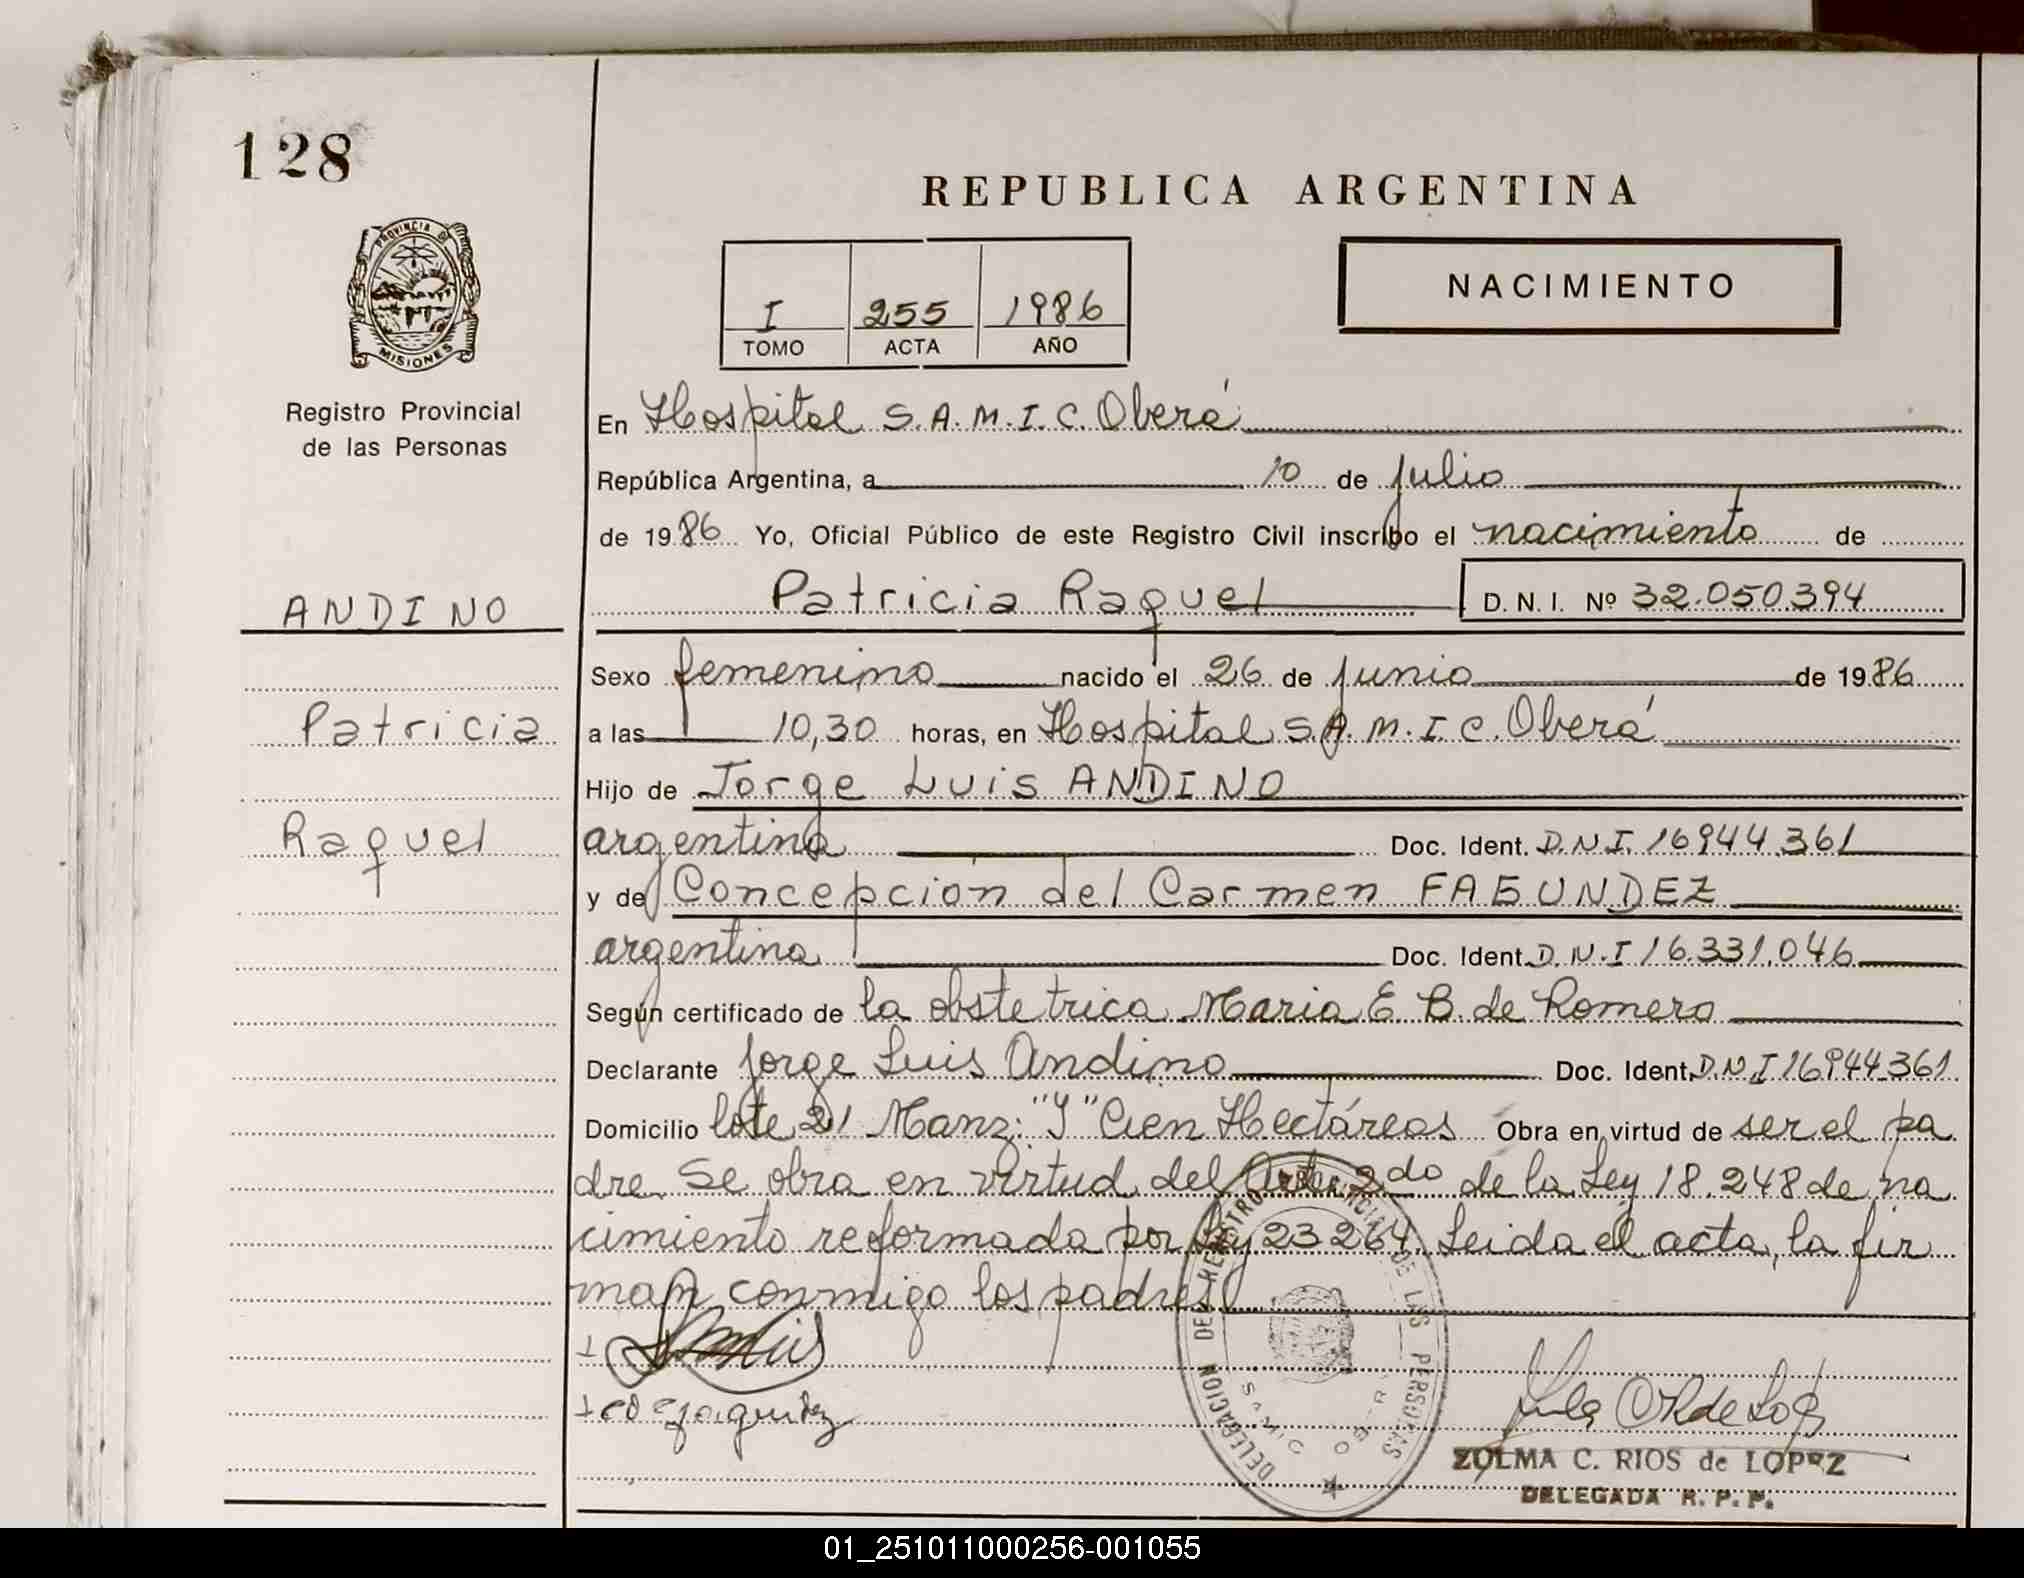 128
REPUBLICA ARGENTINA
PROVINCIA DE
MISIONES
I 255 1986
TOMO ACTA AÑO
NACIMIENTO
Registro Provincial
de las Personas
En Hospital S.A.M.I.C. Oberá
República Argentina, a 10 de julio
de 1986 Yo, Oficial Público de este Registro Civil inscribo el nacimiento de
Patricia Raquel D. N. I. Nº 32.050.394
ANDINO
Patricia
Raquel
Sexo femenino nacido el 26 de junio de 1986
a las 10,30 horas, en Hospital S.A.M.I.C. Oberá
Hijo de Jorge Luis ANDINO
argentina Doc. Ident. D.N.I. 16944.361
y de Concepción del Carmen FAGUNDEZ
argentina Doc. Ident. D.N.I 16.331.046
Según certificado de la obstetrica Maria E. B. de Romero
Declarante Jorge Luis Andino Doc. Ident. D.N.I 16944.361
Domicilio lote 21 Manz: "J" Cien Hectáreas Obra en virtud de ser el pa
dre. Se obra en virtud del Art. 2do de la Ley 18.248 de na
cimiento reformada por Ley 23264. Leida el acta, la fir
man conmigo los padres
DELEGACION DEL REGISTRO PROVINCIAL DE LAS PERSONAS
SAMIC OBERA
ZULMA C. RIOS de LOPEZ
DELEGADA R. P. P.
01_251011000256-001055